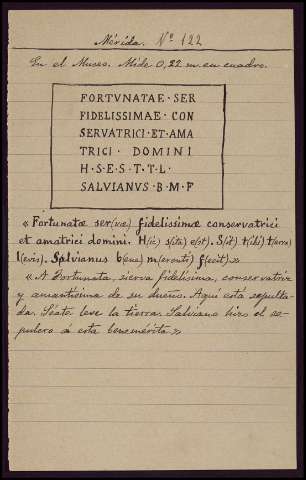 Mérida. Nº 122
En el Museo. Mide 0,22 m. en cuadro.
FORTVNATAE · SER
FIDELISSIMAE · CON
SERVATRICI · ET · AMA
TRICI · DOMINI
H · S · E · S · T · T · L ·
SALVIANVS · B · M · F
« Fortunatæ ser(væ) fidelissimæ conservatrici
et amatrici domini. H(ic) s(ita) e(st). S(it) t(ibi) t(erra)
l(evis). Salvianus b(ene) m(erenti) f(ecit).»
« A Fortunata, sierva fidelísima, conservatriz
y amantísima de su dueño. Aquí está sepulta-
da. Séate leve la tierra. Salviano hizo el se-
pulcro á esta benemérita »